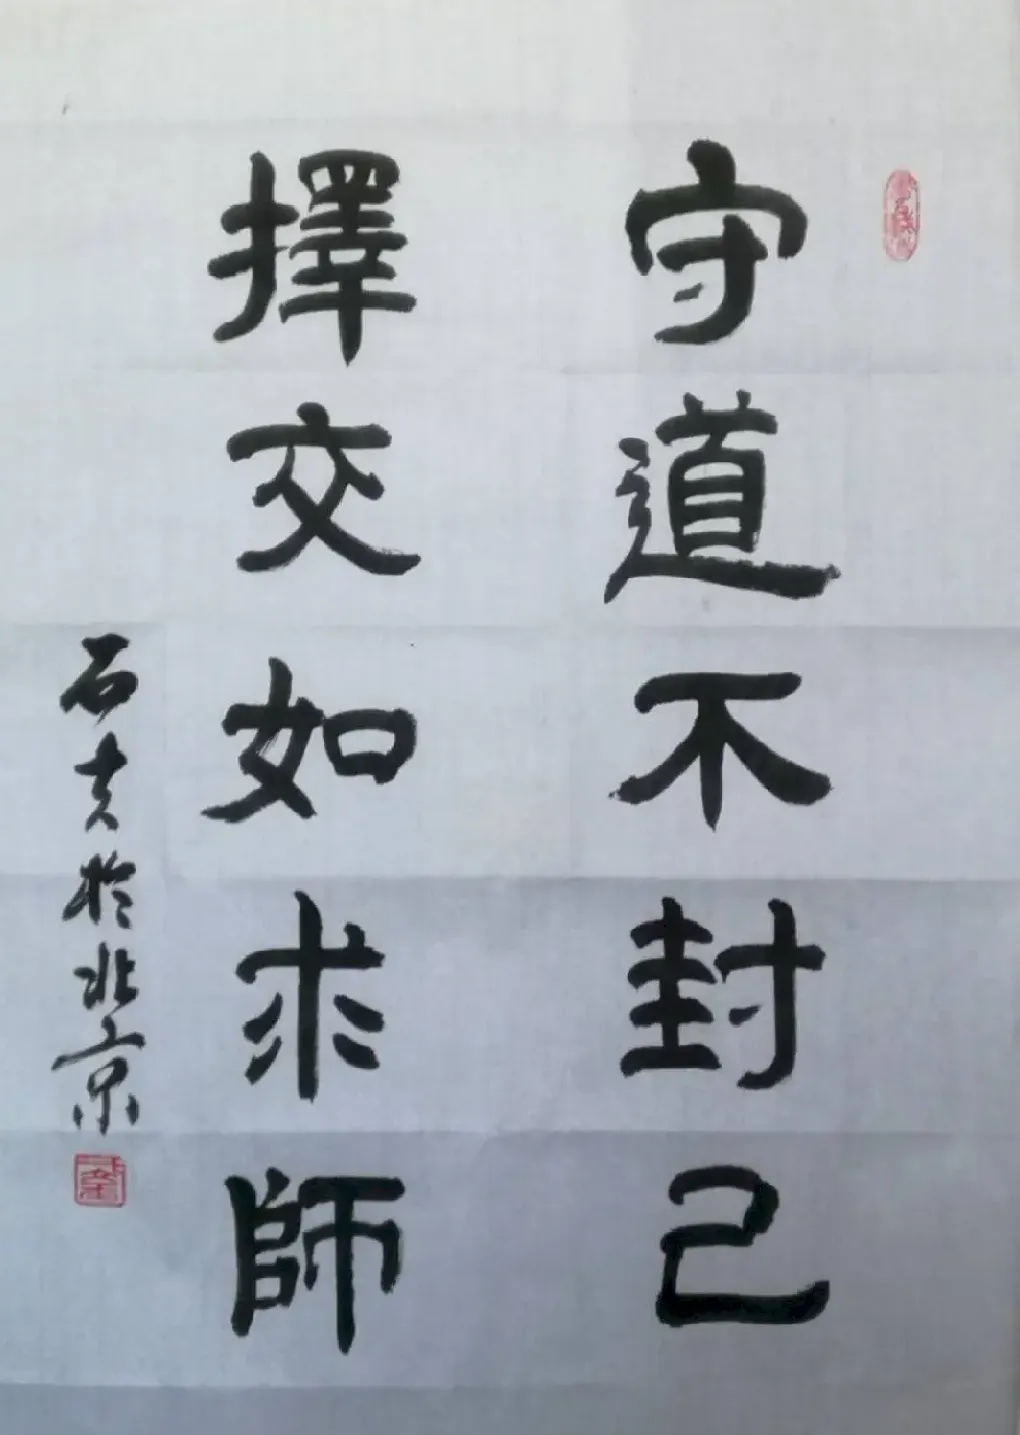 守道不封己
擇交如求師
石夫於北京